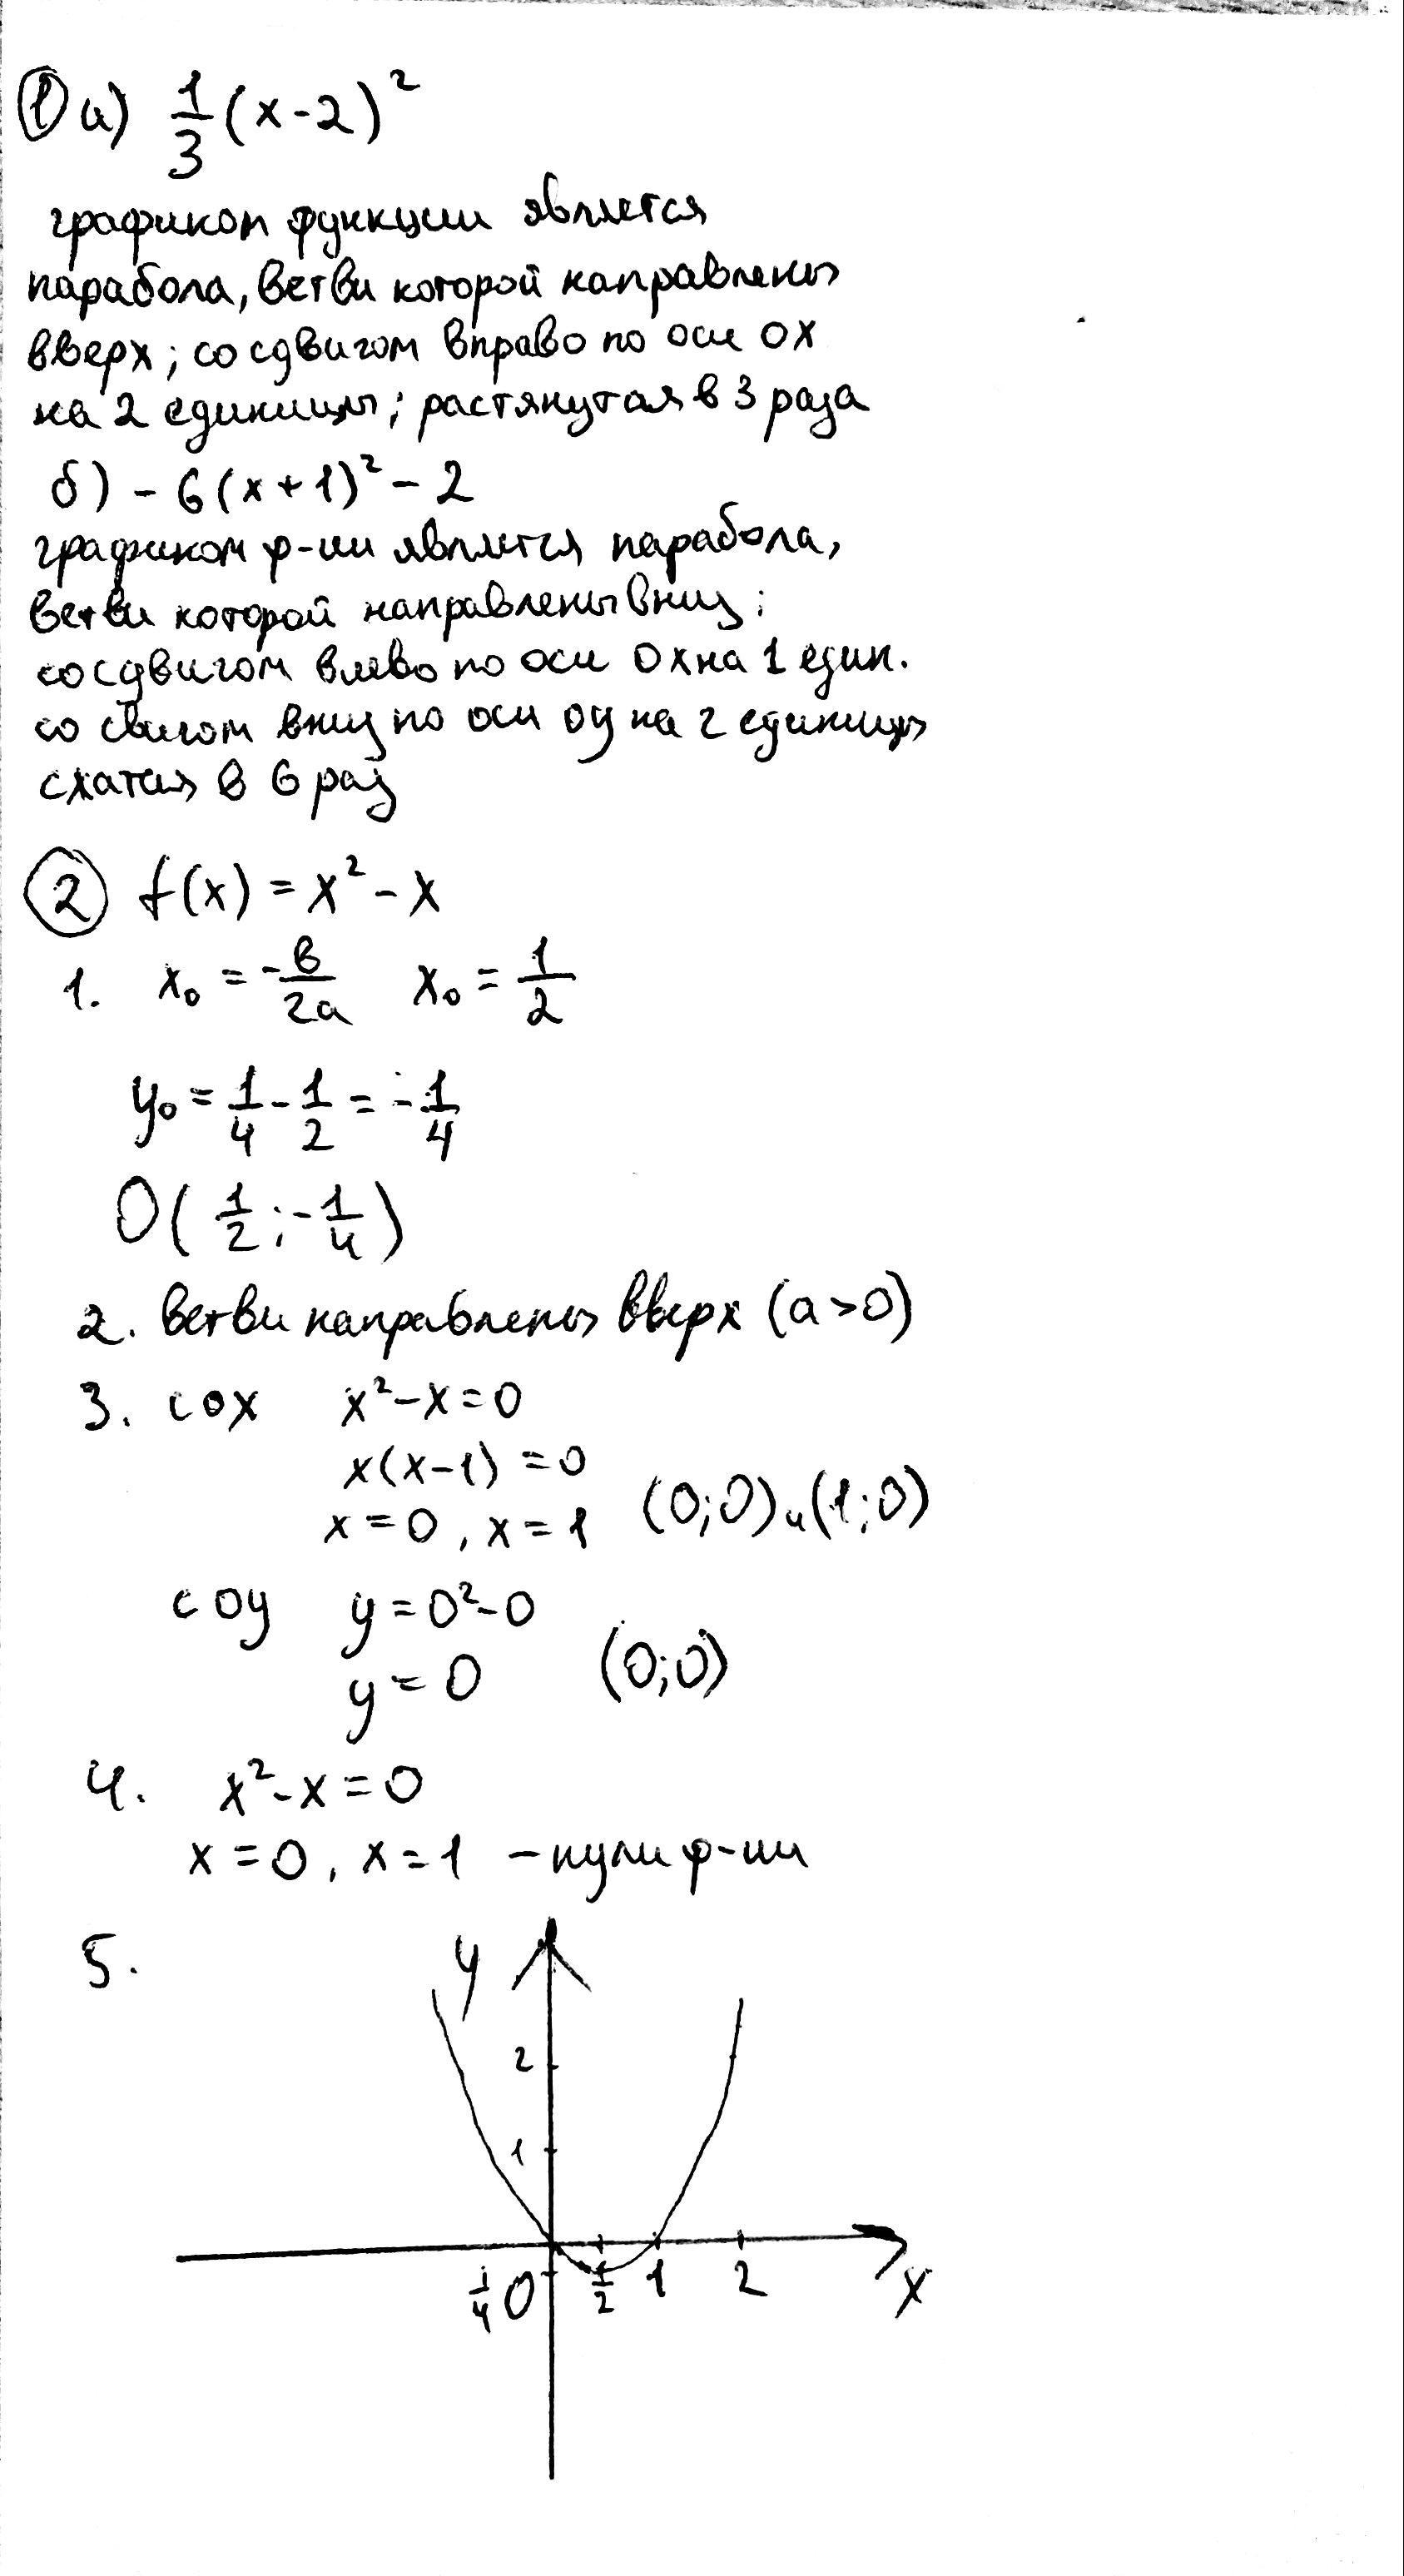 ① а) 1/3 (x-2)²
графиком функции является
парабола, ветви которой направлены
вверх; со сдвигом вправо по оси OX
на 2 единицы; растянутая в 3 раза
б) - 6(x+1)² - 2
графиком ф-ии является парабола,
ветви которой направлены вниз;
со сдвигом влево по оси Ox на 1 един.
со свигом вниз по оси oy на 2 единицы
сжатая в 6 раз
② f(x) = x² - x
1. x₀ = -в/2a x₀ = 1/2
y₀ = 1/4 - 1/2 = -1/4
O(1/2; -1/4)
2. ветви направлены вверх (a>0)
3. с ox x²-x=0
x(x-1) = 0
x=0, x=1 (0;0) и (1;0)
с oy y=0²-0
y=0 (0;0)
4. x²-x=0
x=0, x=1 - нули ф-ии
5. y
2
1
1/4 0 1/2 1 2 x